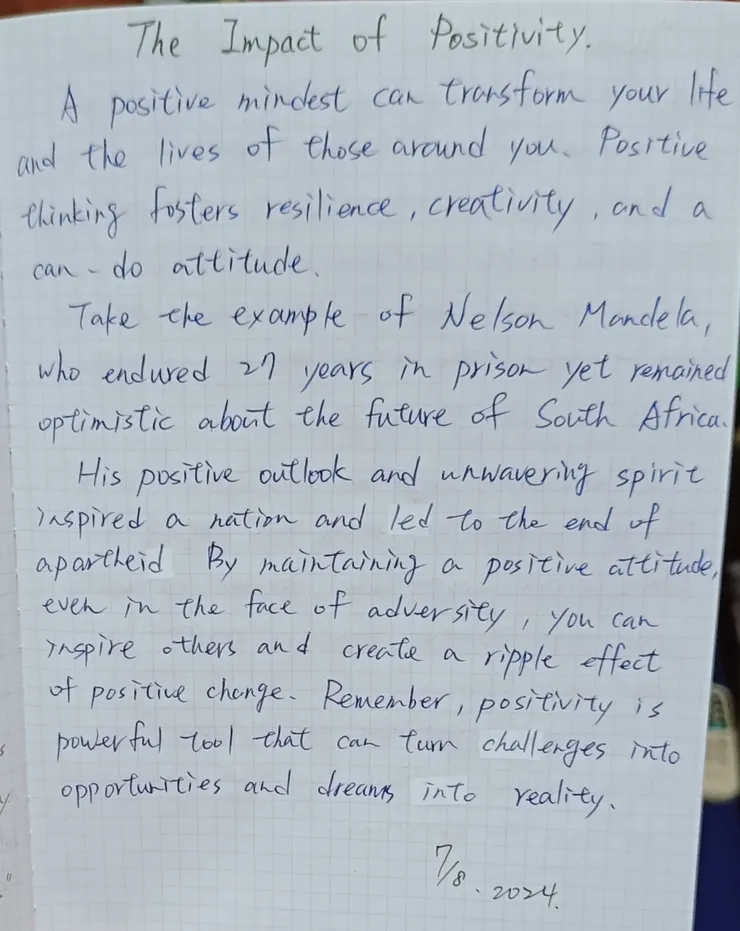 The Impact of Positivity.
A positive mindest can transform your life
and the lives of those around you. Positive
thinking fosters resilience, creativity, and a
can-do attitude.
Take the example of Nelson Mandela,
who endured 27 years in prison yet remained
optimistic about the future of South Africa.
His positive outlook and unwavering spirit
inspired a nation and led to the end of
apartheid By maintaining a positive attitude,
even in the face of adversity, you can
inspire others and create a ripple effect
of positive change. Remember, positivity is
powerful tool that can turn challenges into
opportunities and dreams into reality.
7/8. 2024.